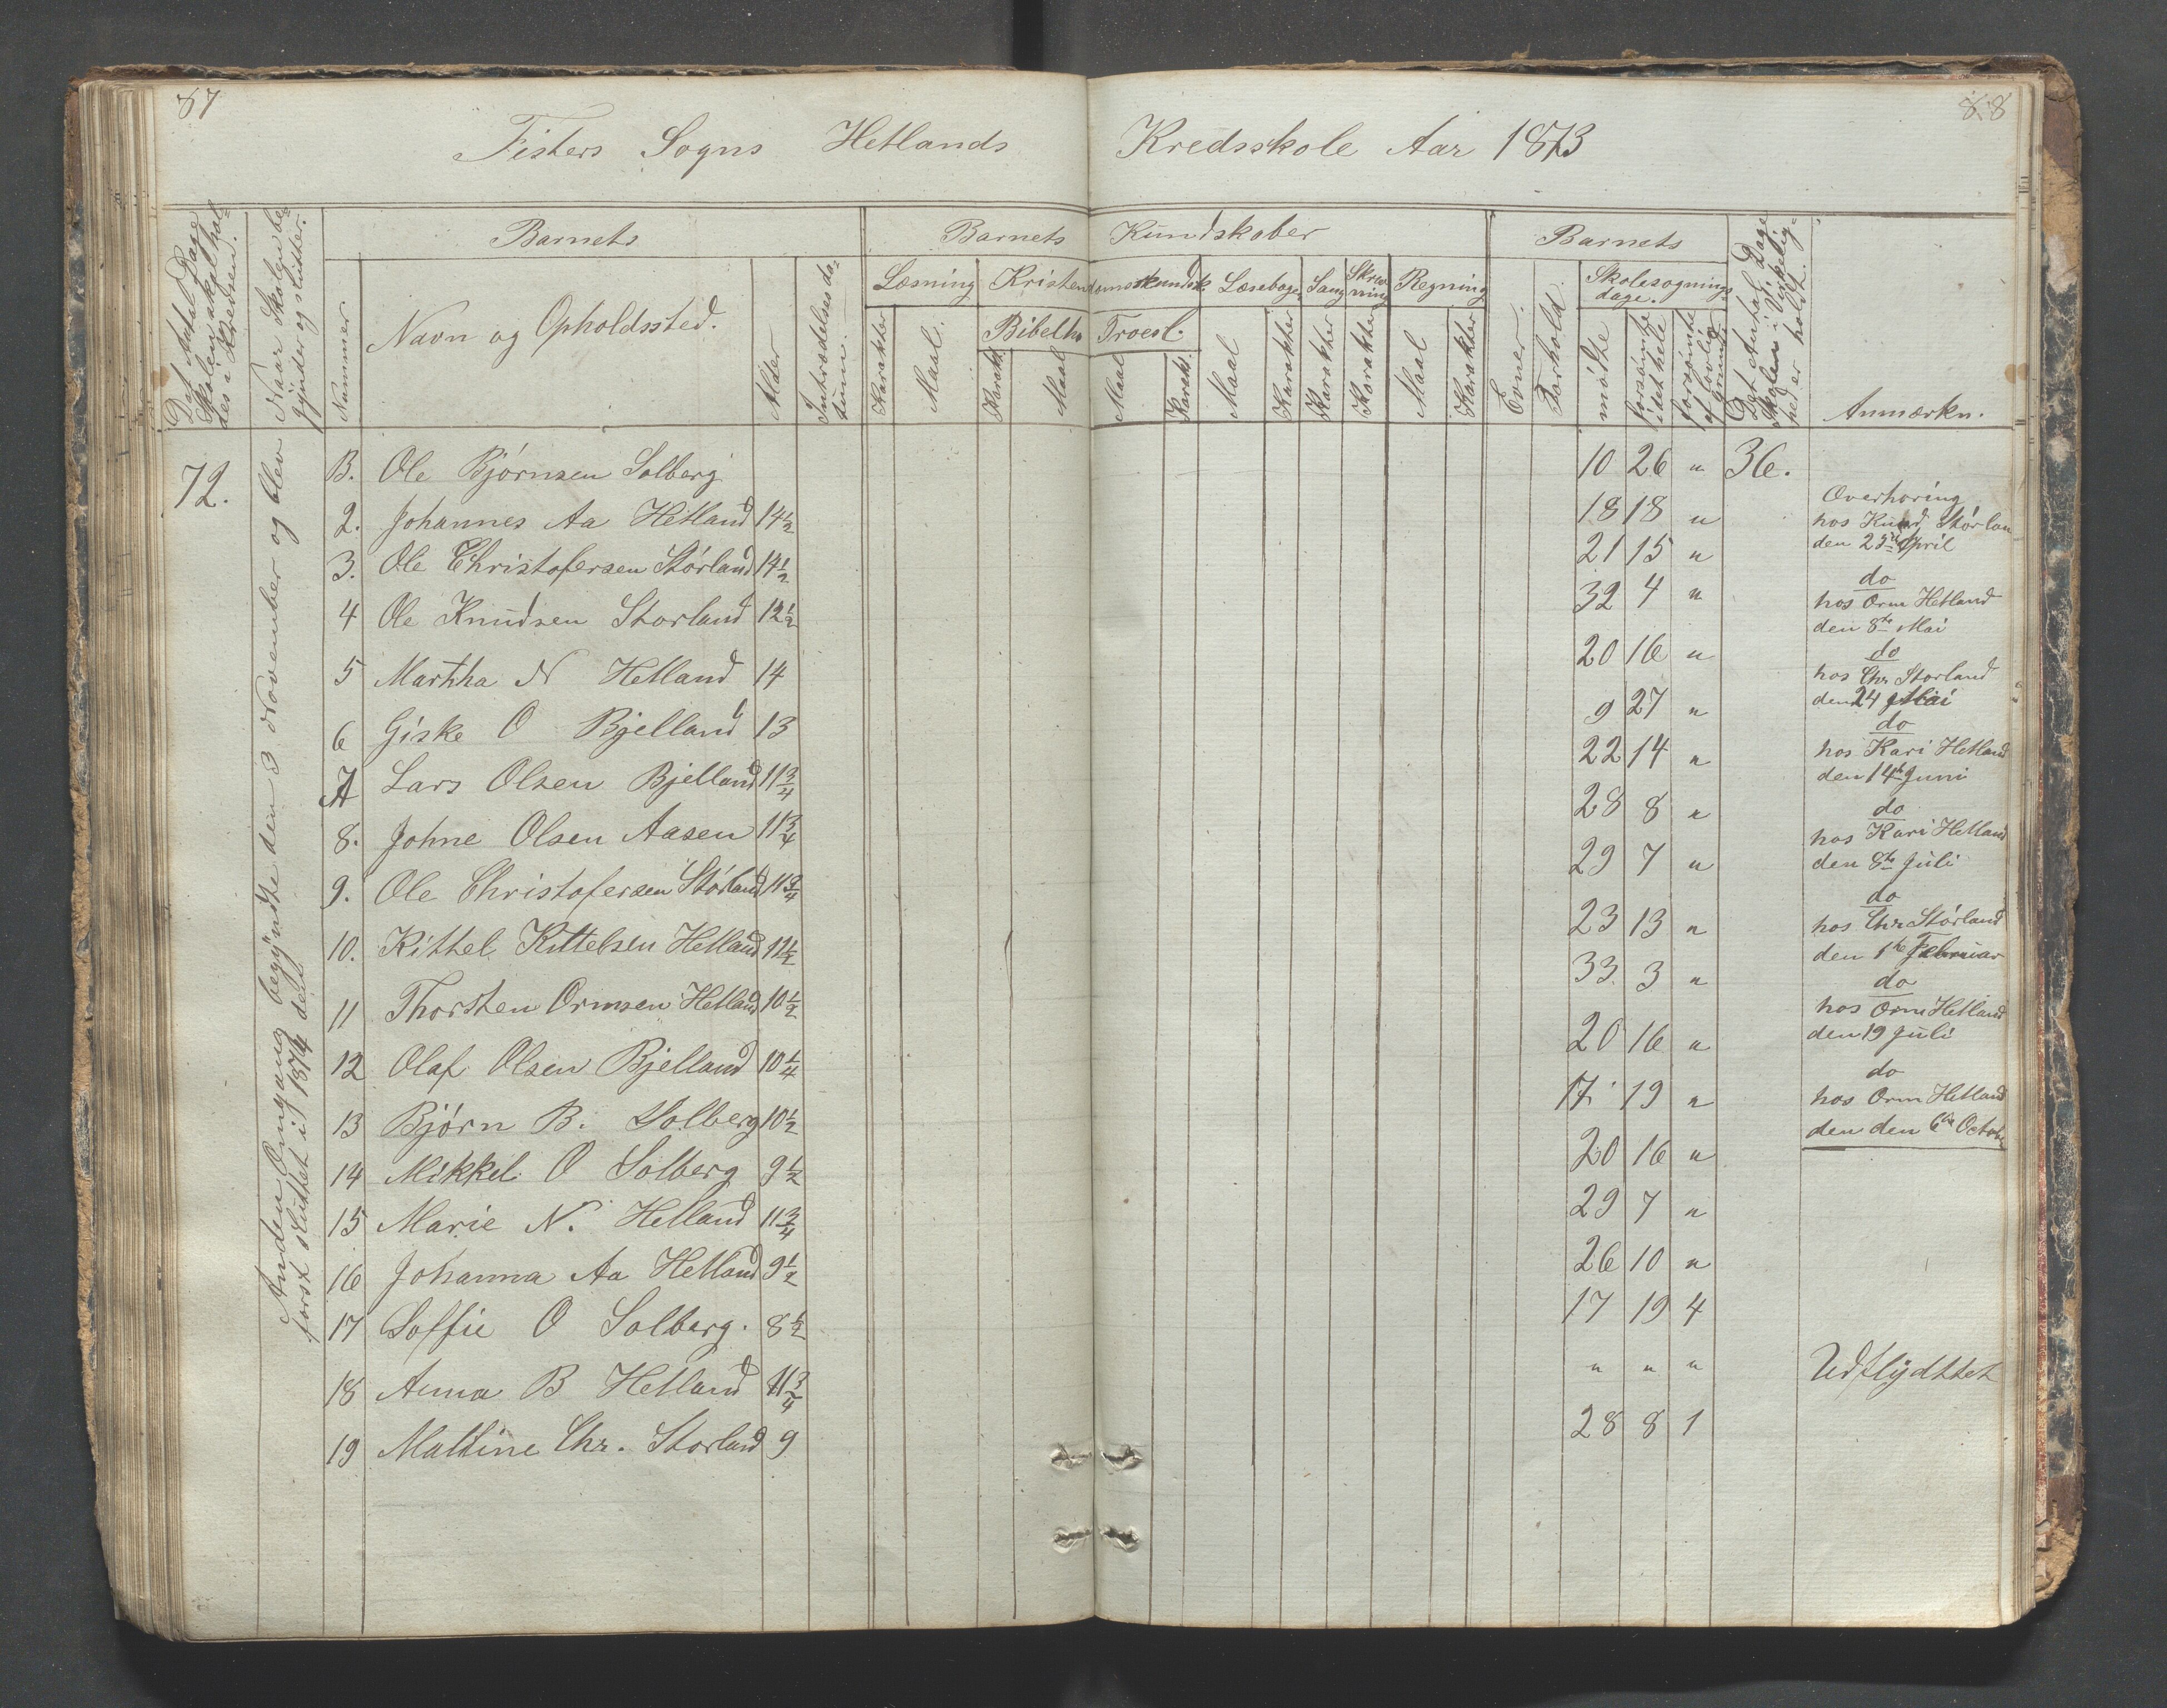 87
88
Fisters Sogns Hetlands Kredsskole Aar 1873
Det Antal Dage Skolen skal holdes i Kredsen.
Naar Skolen begynder og slutter.
Barnets
Barnets Kundskaber
Barnets
Nummer
Navn og Opholdssted.
Alder
Indtrædelsesdatum.
Læsning
Kristendomskundsk.
Læsebogen
Sang
Skrivning
Regning
Evner.
Forhold.
Skolesøgningsdage.
Bibelh.
Troesl.
Karakter
Maal.
Karakt.
Maal
Maal
Karakt.
Maal
Karakter
Karakter
Karakter
Maal
Karakter
mødte
forsømte i det hele
forsømte af lovlig Grund
Det Antal Dage Skolen i Virkelighed er holdt.
Anmærkn.
72.
Anden Omgang begyndte den 3 November og blev
først sluttet i 1874 den
B. Ole Bjørnsen Solberg 10 26 " 36.
2. Johannes Aa Hetland 14 1/2 18 18 "
3. Ole Christofersen Størland 14 1/2 21 15 "
4 Ole Knudsen Storland 12 1/2 32 4 "
5 Marthha N Hetland 14 20 16 "
6 Giske O Bjelland 13 9 27 "
7 Lars Olsen Bjelland 11 3/4 22 14 "
8. Johne Olsen Aasen 11 3/4 28 8 "
9. Ole Christofersen Størland 11 3/4 29 7 "
10. Kittel Kittelsen Hetland 11 1/2 23 13 "
11 Thorsten Ormsen Hetland 10 1/2 33 3 "
12 Olaf Olsen Bjelland 10 1/4 20 16 "
13 Bjørn B. Solberg 10 1/2 17 19 "
14 Mikkel O Solberg 9 1/2 20 16 "
15 Marie N. Hetland 11 3/4 29 7 "
16 Johanna Aa Hetland 9 1/2 26 10 "
17 Soffie O Solberg. 8 1/2 17 19 4
18 Anna B Hetland 11 3/4 " " " Udflydttet
19 Maltine Chr. Storland 9 28 8 1
Overhøring
hos Knud Størlan
den 25 April
do
hos Orm Hetland
den 8de Mai
do
hos Chr Storland
den 24 Mai
do
hos Kari Hetland
den 14de Juni
do
hos Kari Hetland
den 8de Juli
do
hos Chr Størland
den 1ste Februar
do
hos Orm Hetland
den 19 Juli
do
hos Orm Hetland
den den 6te Octobe